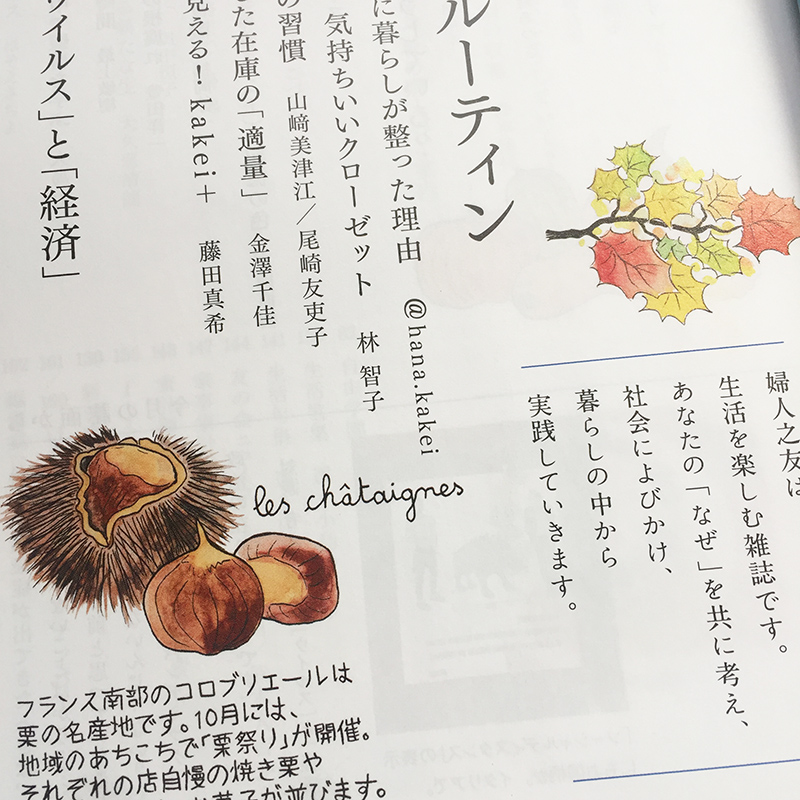 婦人之友は
生活を楽しむ雑誌です。
あなたの「なぜ」を共に考え、
社会によびかけ、
暮らしの中から
実践していきます。
ルーティン
に暮らしが整った理由 @hana.kakei
気持ちいいクローゼット 林 智子
の習慣 山﨑美津江／尾崎友吏子
た在庫の「適量」 金澤千佳
見える！kakei＋ 藤田真希
ウイルス」と「経済」
les châtaignes
フランス南部のコロブリエールは
栗の名産地です。10月には、
地域のあちこちで「栗祭り」が開催。
それぞれの店自慢の焼き栗や
お菓子が並びます。